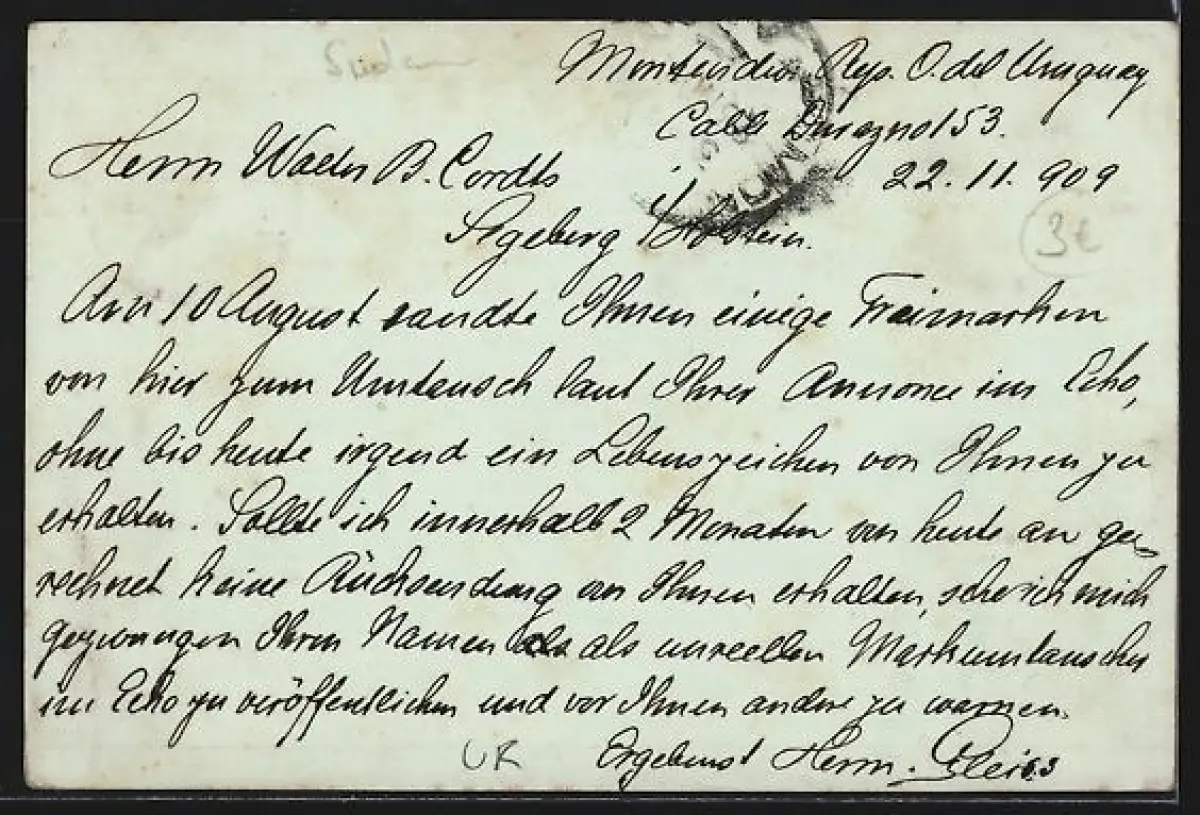 Montevideo Rep. O. del Uruguay
Calle 153.
22.11.909
Herrn Walter B. Cordts
Segeberg i/Holstein.
Am 10 August sandte Ihnen einige Freimarken
von hier zum Umtausch laut Ihrer Annonce im Echo,
ohne bis heute irgend ein Lebenszeichen von Ihnen zu
erhalten. Sollte ich innerhalb 2 Monaten von heute an ge=
rechnet keine Rücksendung von Ihnen erhalten, sehe ich mich
gezwungen Ihren Namen als unreellen Markenumtauscher
im Echo zu veröffentlichen und vor Ihnen andere zu warnen.
Ergebenst Herm.
3€
UR